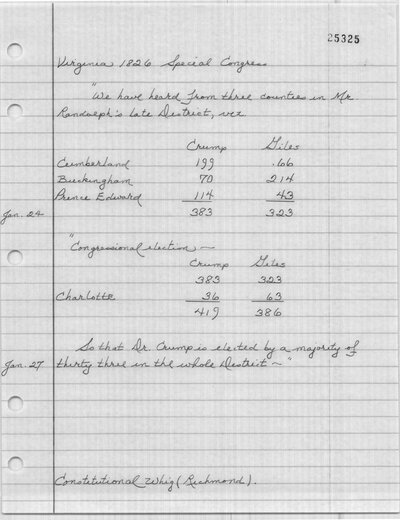 25325
Virginia 1826 Special Congress
"We have heard from three counties in Mr
Randolph's late District, viz
Crump Giles
Cumberland 199 66
Buckingham 70 214
Prince Edward 114 43
Jan. 24 383 323
"Congressional election —
Crump Giles
383 323
Charlotte 36 63
419 386
So that Dr. Crump is elected by a majority of
Jan. 27 thirty three in the whole District —"
Constitutional Whig (Richmond).